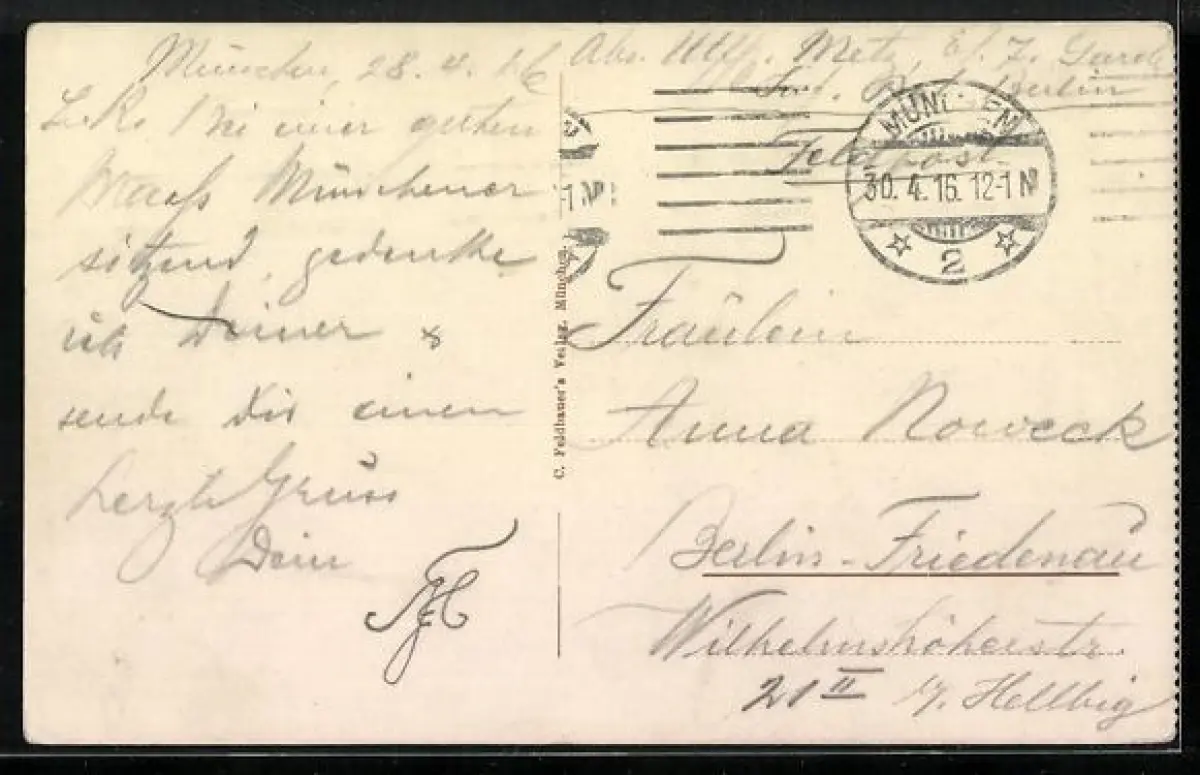 München, 28. 4. 16
L. K.! Bei einer guten
Maass Münchener
sitzend, gedenke
ich Deiner &
sende Dir einen
herzl. Gruss
Dein
Abs. Utffz. Metz, E. /. 7. Garde
Inf. Rgt. Berlin
Feldpost
MÜNCHEN
30. 4. 16. 12-1 N
2
Fräulein
Anna Noweck
Berlin-Friedenau
Wilhelmshöherstr.
21 II b/. Hellbig
C. Feldbauer's Verlag, München.